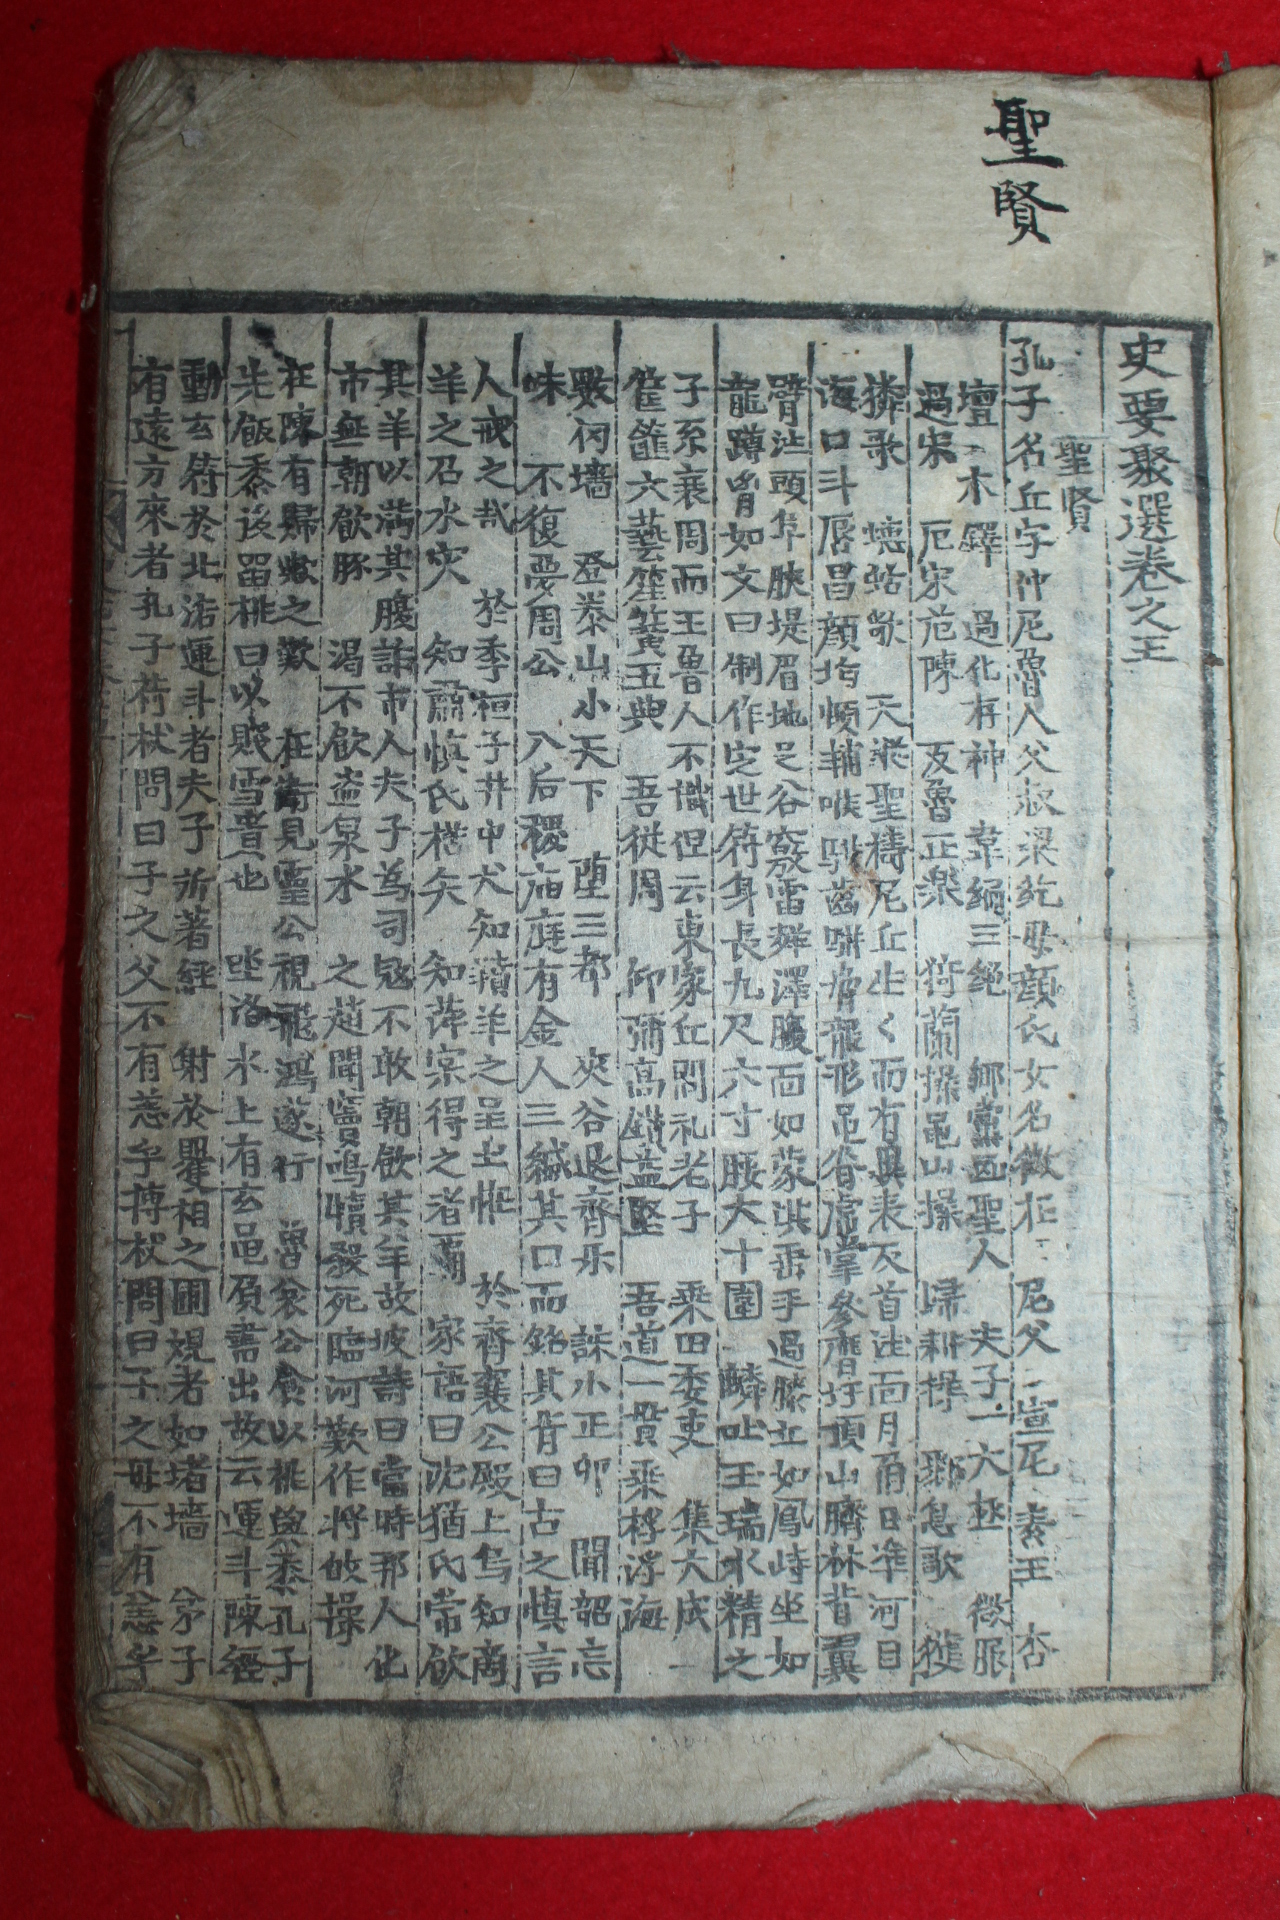 聖賢
史要聚選卷之五
聖賢
孔子名丘字仲尼魯人父叔梁紇母顔氏女名徵在 尼父 宣尼 素王 杏
壇 木鐸 過化存神 韋編三絶 鄕黨畫聖人 夫子 六丞 微服
過宋 厄宋范陳 反魯正樂 猗蘭操龜山操 歸耕操 息歌 獲
獜歌 蟪蛄歌 天縱聖禱尼丘生 而有異表反首洼面月角日準河目
海口斗唇昌顔均頤輔喉騈齒騈脅龍形龜脊虎掌參膺圩頂山臍林背翼
臂注頭阜腴堤眉地足谷竅雷聲澤腹面如蒙淇垂手過膝立如鳳峙坐如
龍蹲胷如文曰制作定世符身長九尺六寸腰大十圍 麟吐玉瑞水精之
子系衰周而王魯人不識但云東家丘問礼老子 乘田委吏 集大成
筐篚六藝笙簧五典 吾從周 仰彌高鑽益堅 吾道一貫乘桴浮海
數仞墻 登泰山小天下 墮三都 夾谷退齊樂 誅小正卯 聞韶忘
味 不復夢周公 入后稷庙庭有金人三緘其口而銘其背曰古之愼言
人戒之哉 於季桓子井中犬知羵羊之呈土怪 於齊襄公殿上鳥知商
羊之召水灾 知肅愼氏楛矢 知萍宲得之者覇 家語曰沈猶氏常飮
其羊以滿其腹詐市人夫子爲司冦不敢朝飮其羊故坡詩曰當時那人化
市無朝飮豚 渴不飮盗泉水 之趙聞竇鳴犢殺死臨河歎作將故操
在陳有歸歟之歎 在衛見靈公視飛鴻遂行 魯哀公食以桃與黍孔子
先飯黍後留桃曰以賤雪貴也 坐洛水上有玄龜屓書出故云運斗陳經
動玄符於北洛運斗者夫子所著經 射於矍相之圃觀者如堵墻 弟子
有遠方來者孔子荷杖問曰子之父不有恙乎搏杖問曰子之母不有恙乎